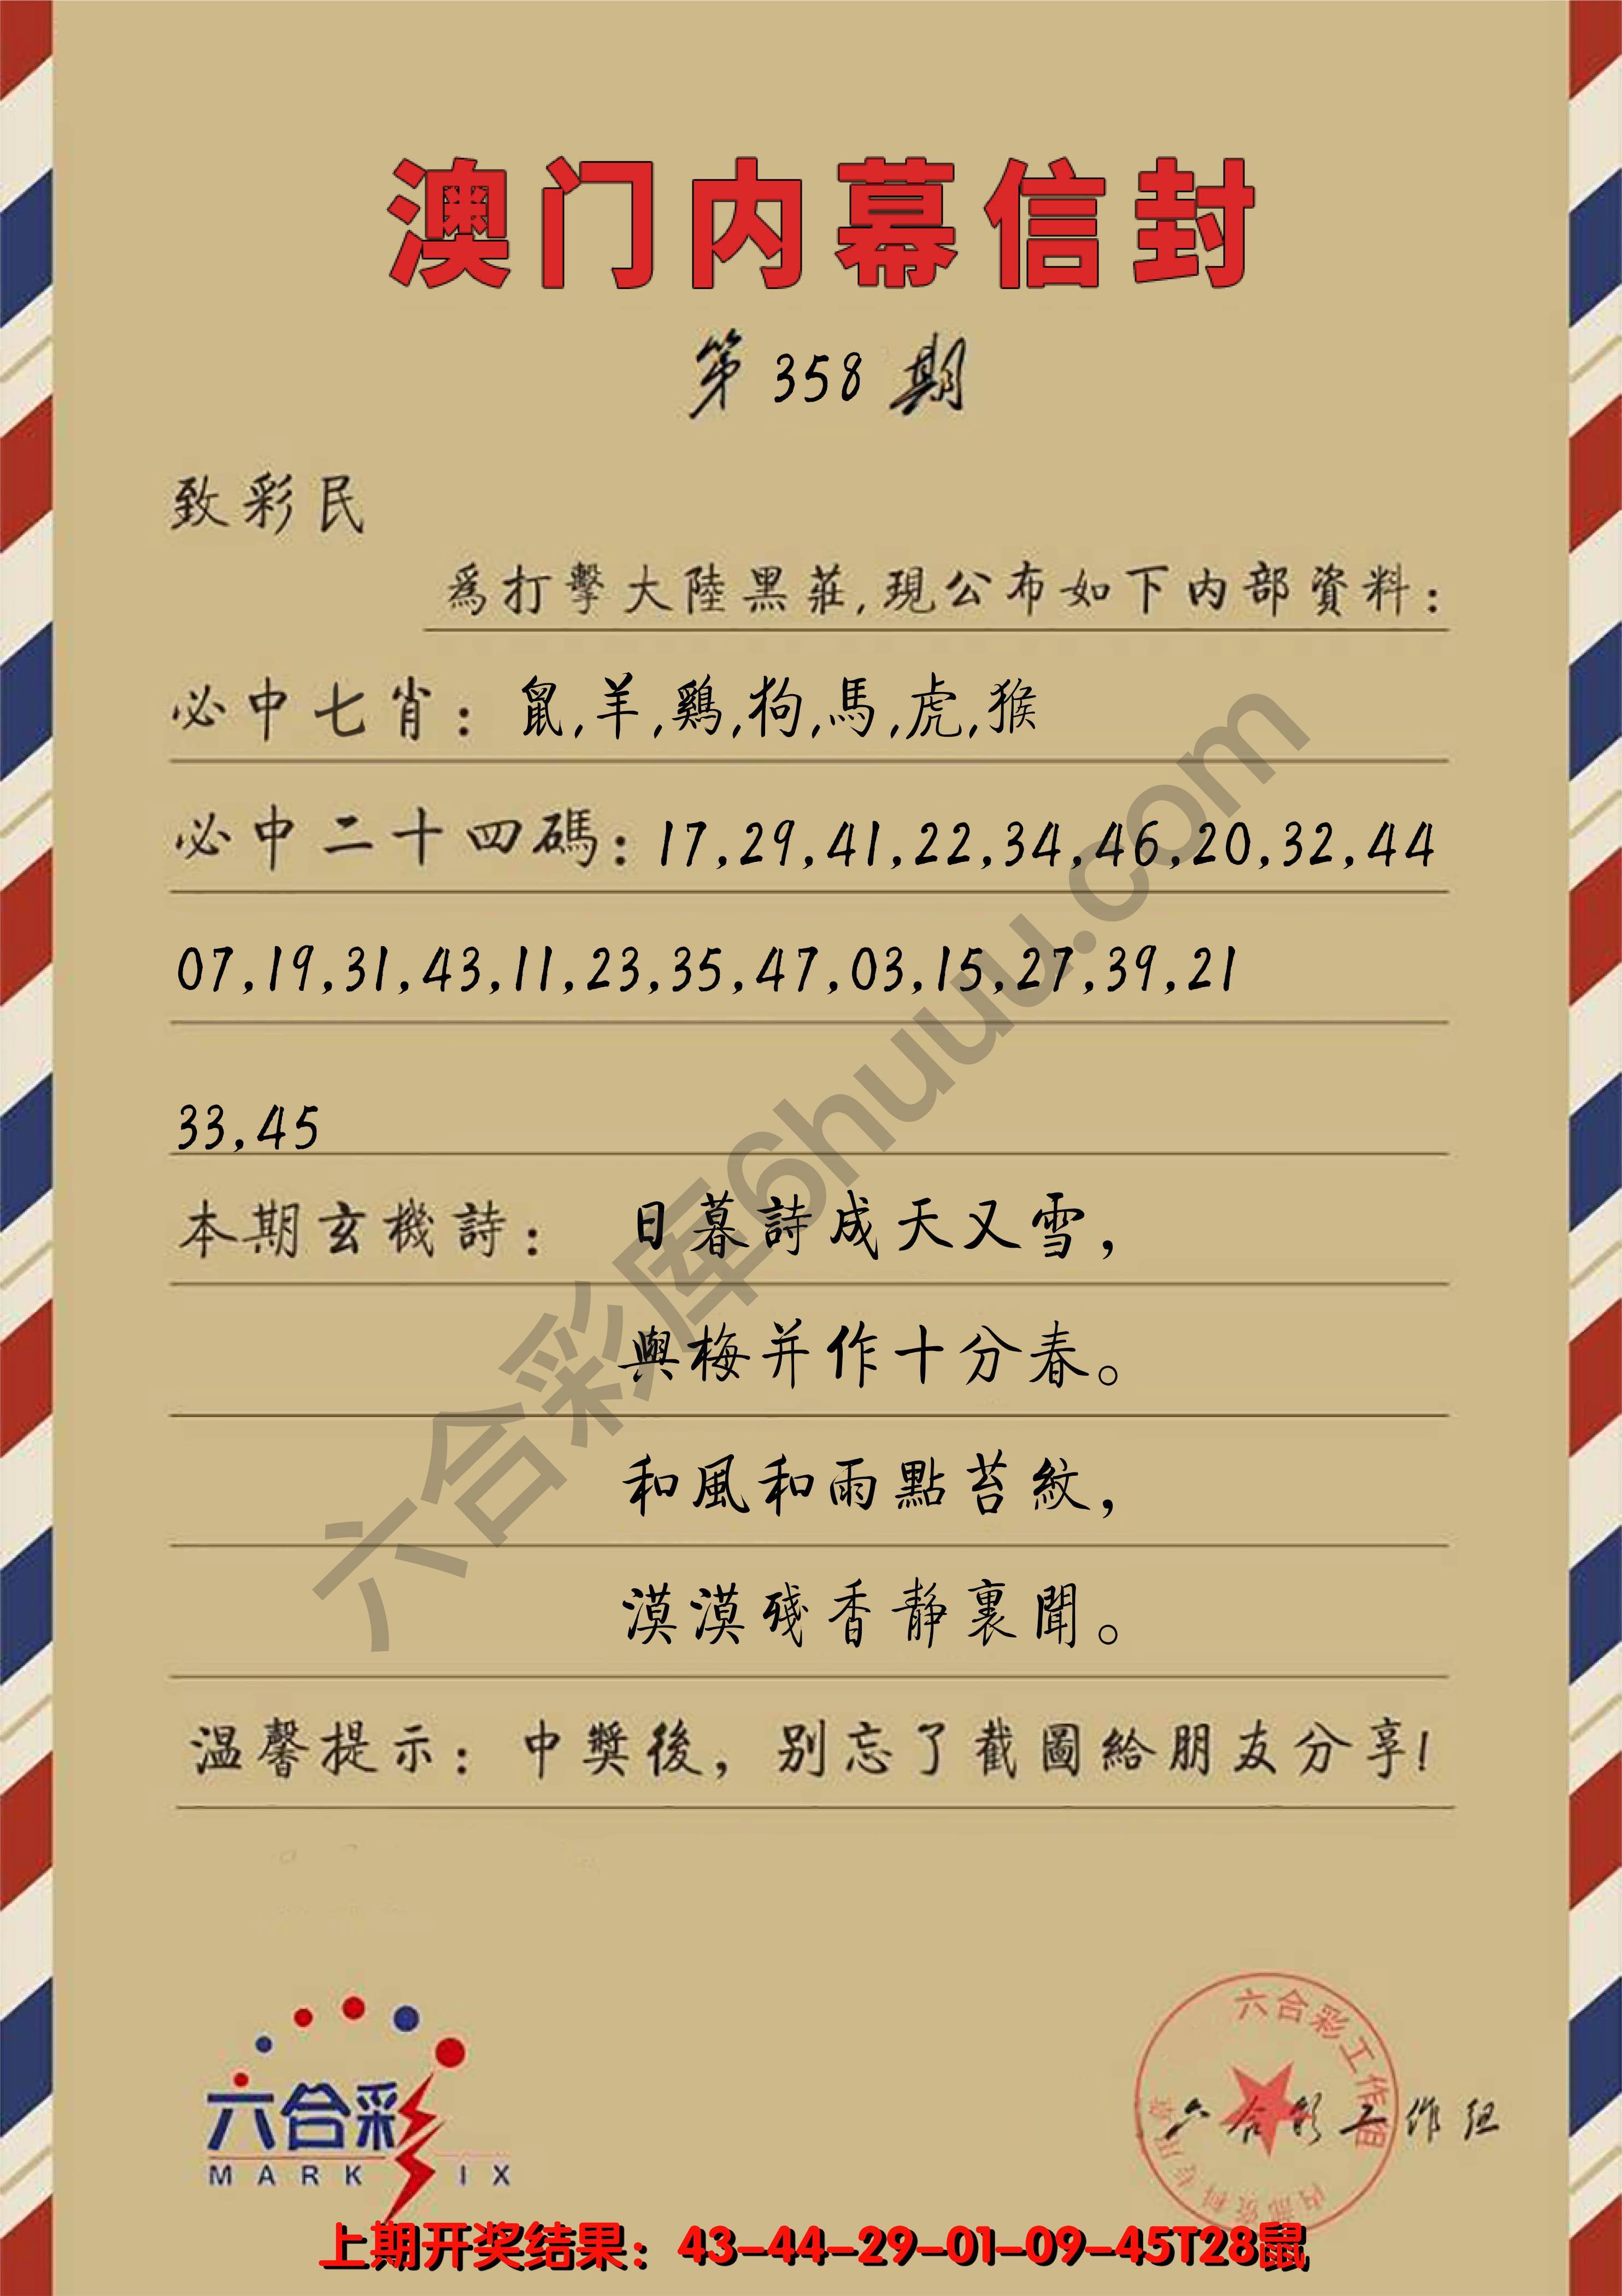 澳门内幕信封
第 358 期
致彩民
爲打擊大陸黑莊,現公布如下内部資料:
必中七肖: 鼠,羊,鷄,狗,馬,虎,猴
必中二十四碼: 17,29,41,22,34,46,20,32,44
07,19,31,43,11,23,35,47,03,15,27,39,21
33,45
本期玄機詩: 日暮詩成天又雪,
與梅并作十分春。
和風和雨點苔紋,
漠漠殘香静裏聞。
温馨提示: 中獎後, 别忘了截圖給朋友分享!
六合彩库6huuu.com
六合彩
MARK IX
六合彩工作组
内部资料专用章
六合彩工作组
上期开奖结果: 43-44-29-01-09-45T28鼠